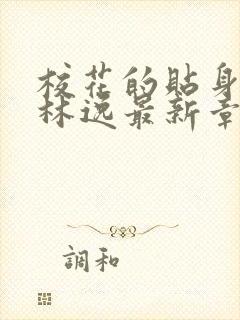 校花的貼身
林逸最新章
調和